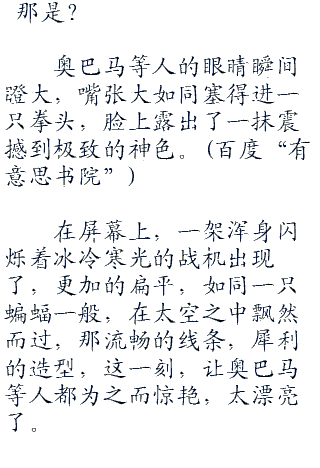 那是？
奥巴马等人的眼睛瞬间
瞪大，嘴张大如同塞得进一
只拳头，脸上露出了一抹震
撼到极致的神色。（百度“有
意思书院”）
在屏幕上，一架浑身闪
烁着冰冷寒光的战机出现
了，更加的扁平，如同一只
蝙蝠一般，在太空之中飘然
而过，那流畅的线条，犀利
的造型，这一刻，让奥巴马
等人都为之而惊艳，太漂亮
了。